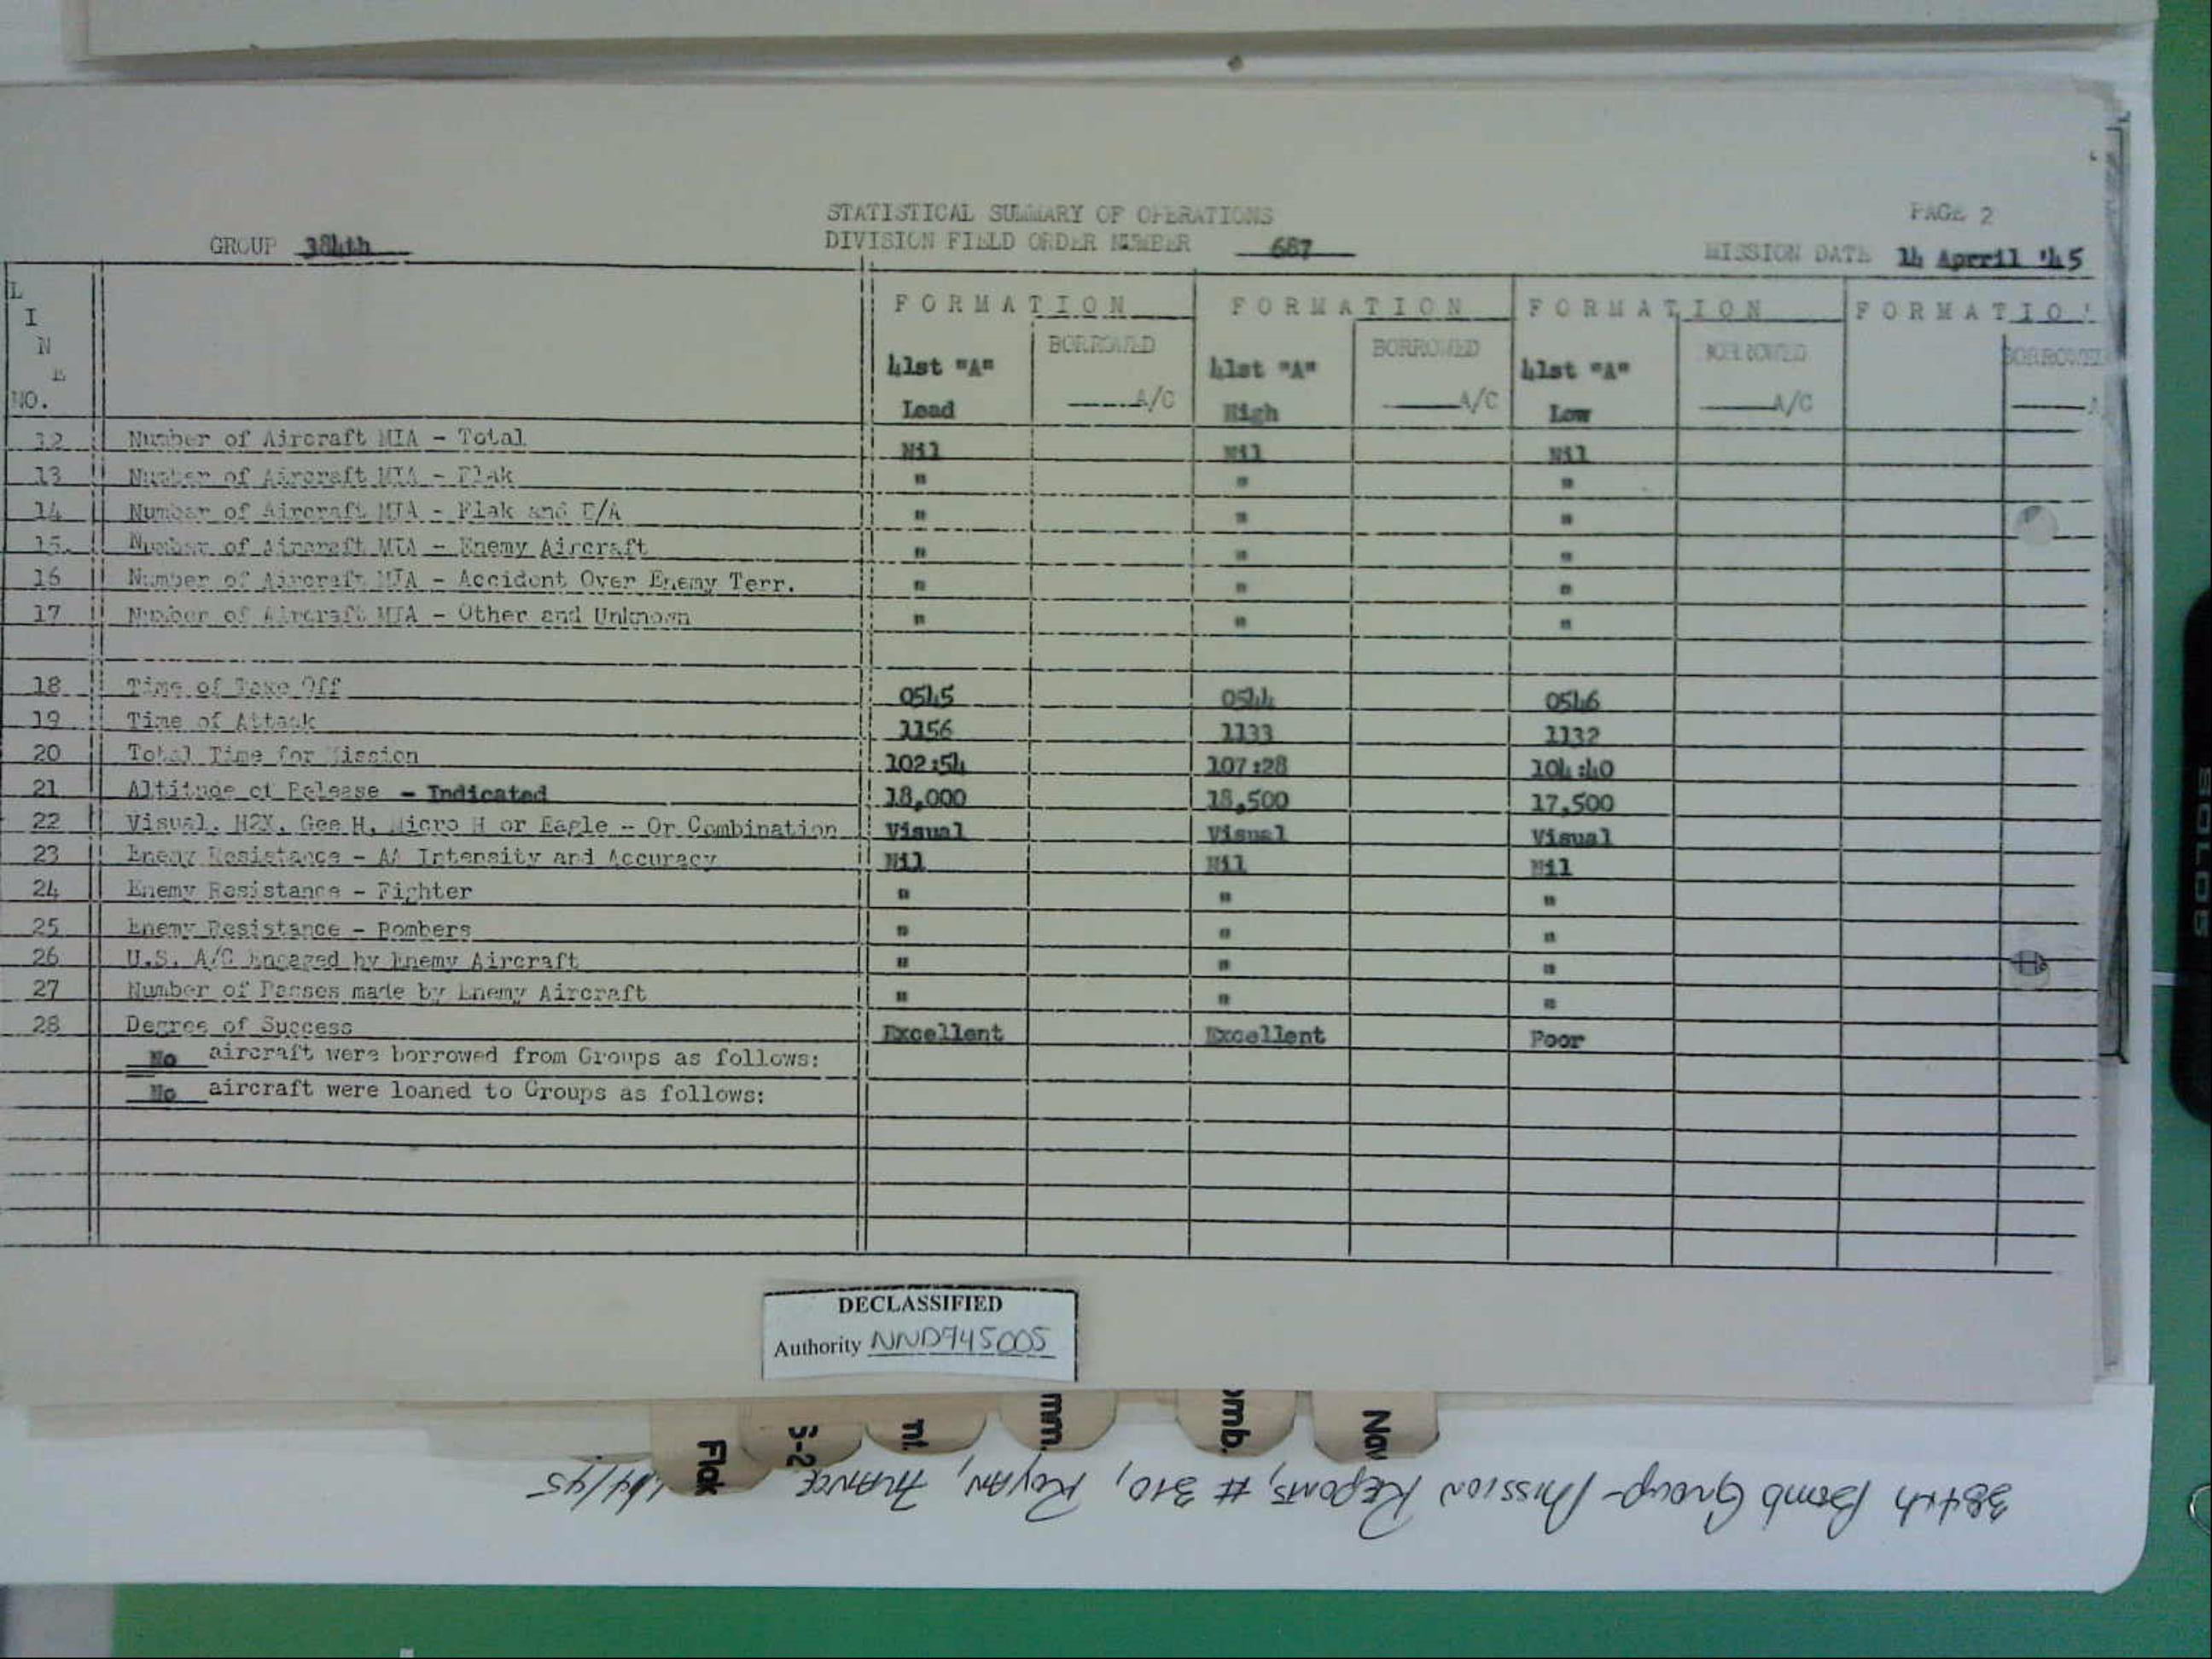 STATISTICAL SUMMARY OF OPERATIONS
PAGE 2
GROUP 384th
DIVISION FIELD ORDER NUMBER 687
MISSION DATE 14 Aprril '45
LINE NO.
FORMATION FORMATION FORMATION FORMATIO
BORROWED BORROWED BORROWED BORROWED
41st "A" 41st "A" 41st "A"
Lead ____A/C High ____A/C Low ____A/C
12 Number of Aircraft MIA - Total Nil Nil Nil
13 Number of Aircraft MIA - Flak " " "
14 Number of Aircraft MIA - Flak and E/A " " "
15. Number of Aircraft MIA - Enemy Aircraft " " "
16 Number of Aircraft MIA - Accident Over Enemy Terr. " " "
17 Number of Aircraft MIA - Other and Unknown " " "
18 Time of Take Off 0545 0544 0546
19 Time of Attack 1156 1133 1132
20 Total Time for Mission 102:54 107:28 104:40
21 Altitude of Release - Indicated 18,000 18,500 17,500
22 Visual, H2X, Gee H, Micro H or Eagle - Or Combination Visual Visual Visual
23 Enemy Resistance - AA Intensity and Accuracy Nil Nil Nil
24 Enemy Resistance - Fighter " " "
25 Enemy Resistance - Bombers " " "
26 U.S. A/C Engaged by Enemy Aircraft " " "
27 Number of Passes made by Enemy Aircraft " " "
28 Degree of Success Excellent Excellent Poor
No aircraft were borrowed from Groups as follows:
No aircraft were loaned to Groups as follows:
DECLASSIFIED
Authority NND745005
Flak
S-2
nt.
mm.
omb.
Nav
384th Bomb Group - Mission Reports, # 310, Royan, France
SOLOS